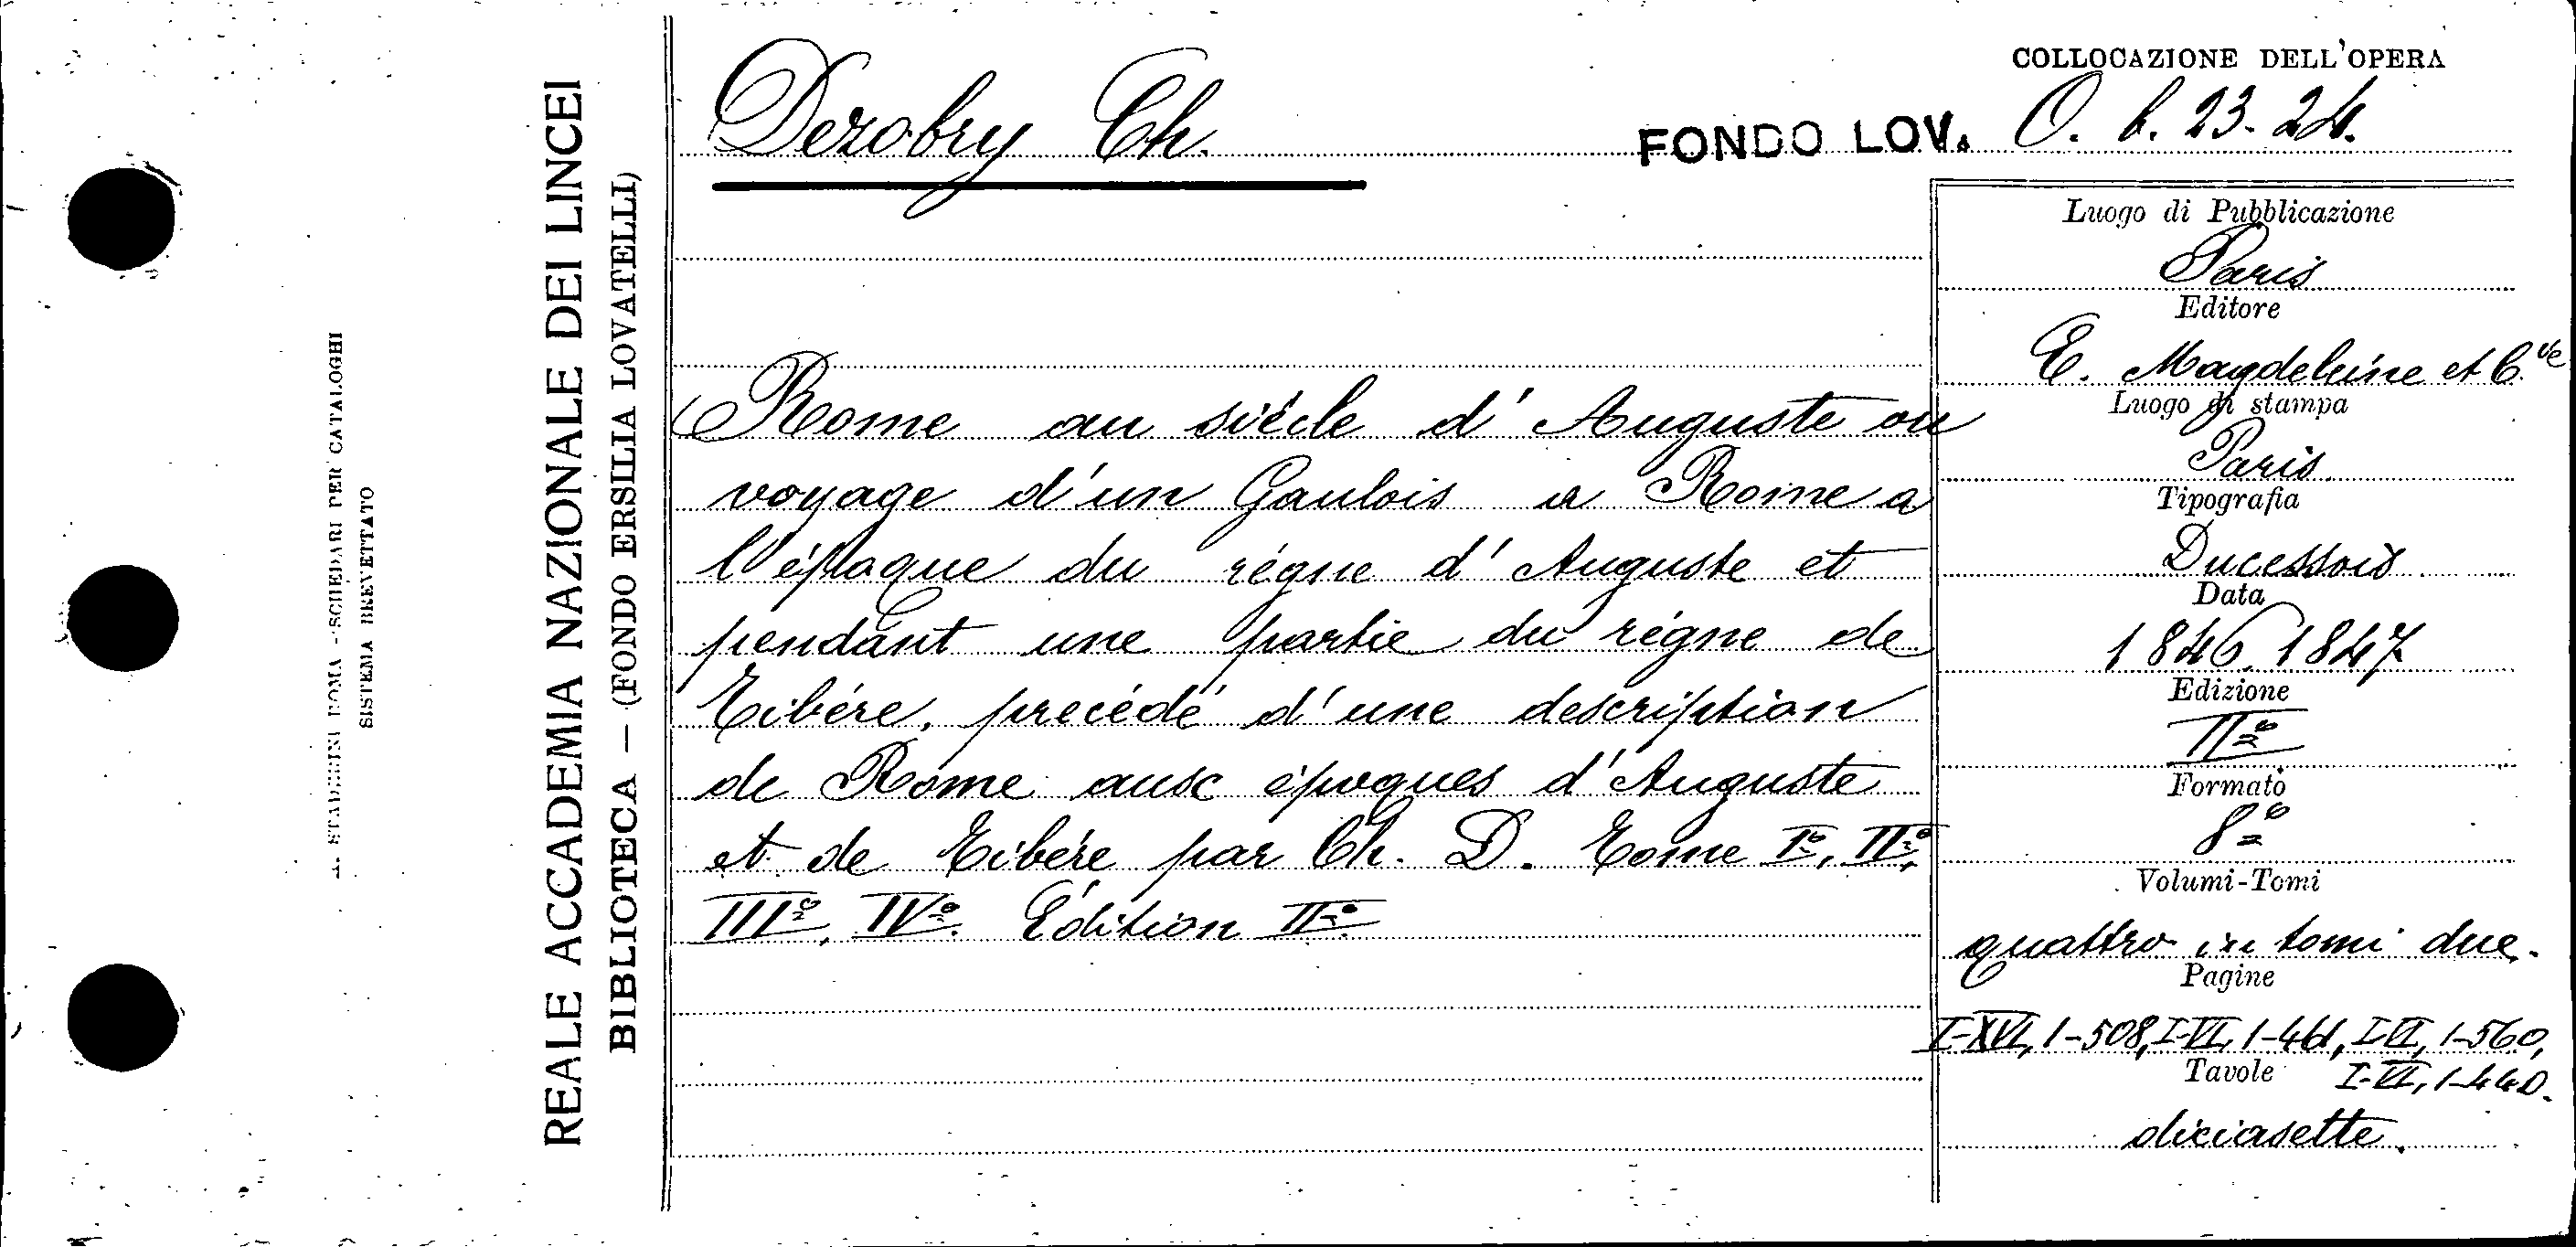 COLLOCAZIONE DELL'OPERA
Dezobry Ch.
FONDO LOV. O. b. 23. 24.
REALE ACCADEMIA NAZIONALE DEI LINCEI
BIBLIOTECA — (FONDO ERSILIA LOVATELLI)
SCHEDARI PER CATALOGHI
SISTEMA BREVETTATO
Rome au siécle d'Auguste ou
voyage d'un Gaulois a Rome a
l'époque du régne d'Auguste et
pendant une partie du régne de
Tibére, precédé d'une description
de Rome aux époques d'Auguste
et de Tibére par Ch. D. Tome Iº, IIº,
IIIº, IVº. Édition IIº.
Luogo di Pubblicazione
Paris
Editore
E. Magdeleine et C.ie
Luogo di stampa
Paris
Tipografia
Ducessois
Data
1846, 1847
Edizione
IIº
Formato
8º
Volumi-Tomi
quattro in tomi due.
Pagine
I-XVI, 1-508, I-VI, 1-461, I-VI, 1-560,
I-VI, 1-440.
Tavole
diciasette.